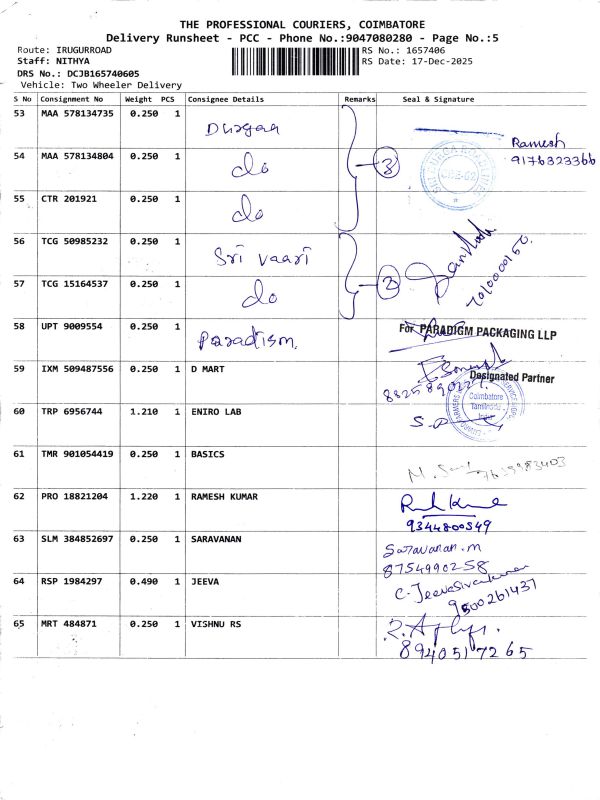 THE PROFESSIONAL COURIERS, COIMBATORE
Delivery Runsheet - PCC - Phone No.:9047080280 - Page No.:5
Route: IRUGURROAD RS No.: 1657406
Staff: NITHYA RS Date: 17-Dec-2025
DRS No.: DCJB165740605
Vehicle: Two Wheeler Delivery
S No Consignment No Weight PCS Consignee Details Remarks Seal & Signature
53 MAA 578134735 0.250 1 Durgaa
Ramesh
9176323366
54 MAA 578134804 0.250 1 do 3
55 CTR 201921 0.250 1 do
56 TCG 50985232 0.250 1 Sri Vaari
57 TCG 15164537 0.250 1 do 2
7010000150.
58 UPT 9009554 0.250 1 Paradism.
For PARADIGM PACKAGING LLP
59 IXM 509487556 0.250 1 D MART
Designated Partner
60 TRP 6956744 1.210 1 ENIRO LAB
Coimbatore
61 TMR 901054419 0.250 1 BASICS
62 PRO 18821204 1.220 1 RAMESH KUMAR
9344800549
63 SLM 384852697 0.250 1 SARAVANAN Saravanan.m
8754990258
64 RSP 1984297 0.490 1 JEEVA C. JeevaSivakumar
9500261437
65 MRT 484871 0.250 1 VISHNU RS
8940517265